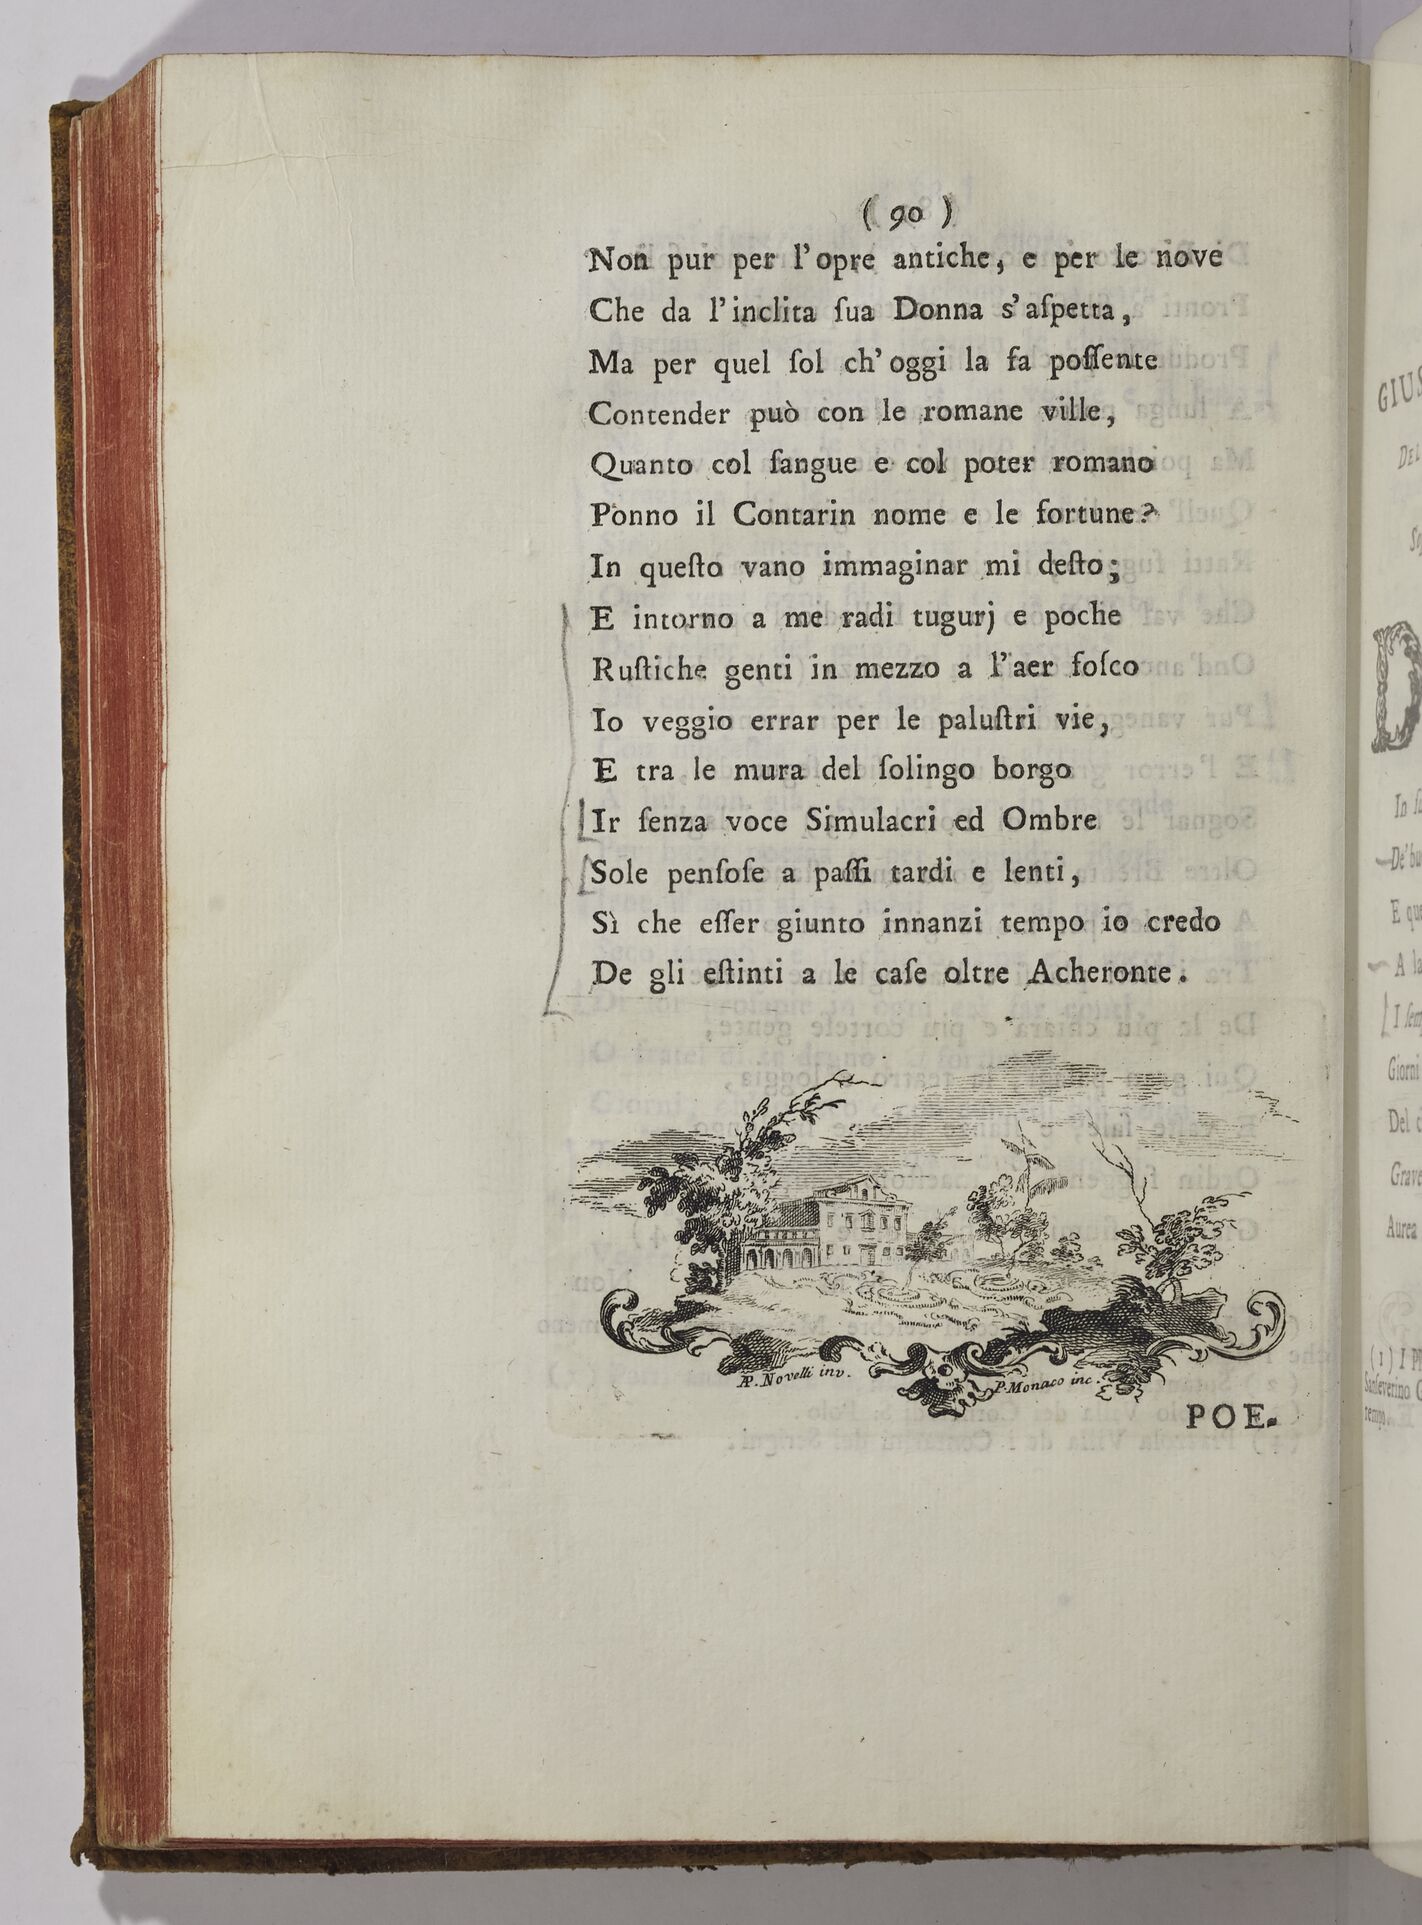 ( 90 )
Non pur per l'opre antiche, e per le nove
Che da l'inclita ſua Donna s'aſpetta,
Ma per quel ſol ch'oggi la fa poſſente
Contender può con le romane ville,
Quanto col ſangue e col poter romano
Ponno il Contarin nome e le fortune?
In queſto vano immaginar mi deſto;
E intorno a me radi tugurj e poche
Ruſtiche genti in mezzo a l'aer foſco
Io veggio errar per le paluſtri vie,
E tra le mura del ſolingo borgo
Ir ſenza voce Simulacri ed Ombre
Sole penſoſe a paſſi tardi e lenti,
Sì che eſſer giunto innanzi tempo io credo
De gli eſtinti a le caſe oltre Acheronte.
AP. Novelli inv.
P. Monaco inc.
POE-
GIUS
DEL
D
In
De' bu
E que
A la
I ſem
Giorni
Del c
Grave
Aurea
(1) I
Sanſeverino
tempo.